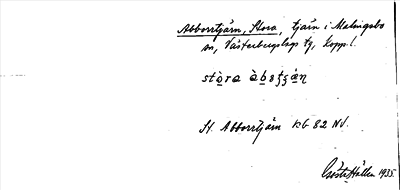 Abborrtjärn, Stora, tjärn i Malingsbo
sn, Västerbergslags tg, Kopp. l.
stòra àbστʒà̀η
St. Abborrtjärn kb 82 NV.
Gösta Hallen 1935.